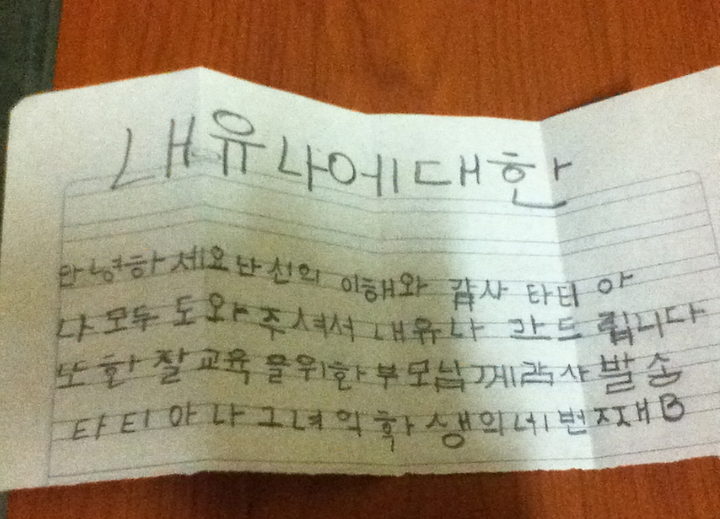 내유나에대한
안녕하세요난신의 이해와 감사 타티아
나모두도와주셔서 내유나 감드립니다
또한 잘교육을위한부모님께감사발송
타티아나그녀의학생의네번째B